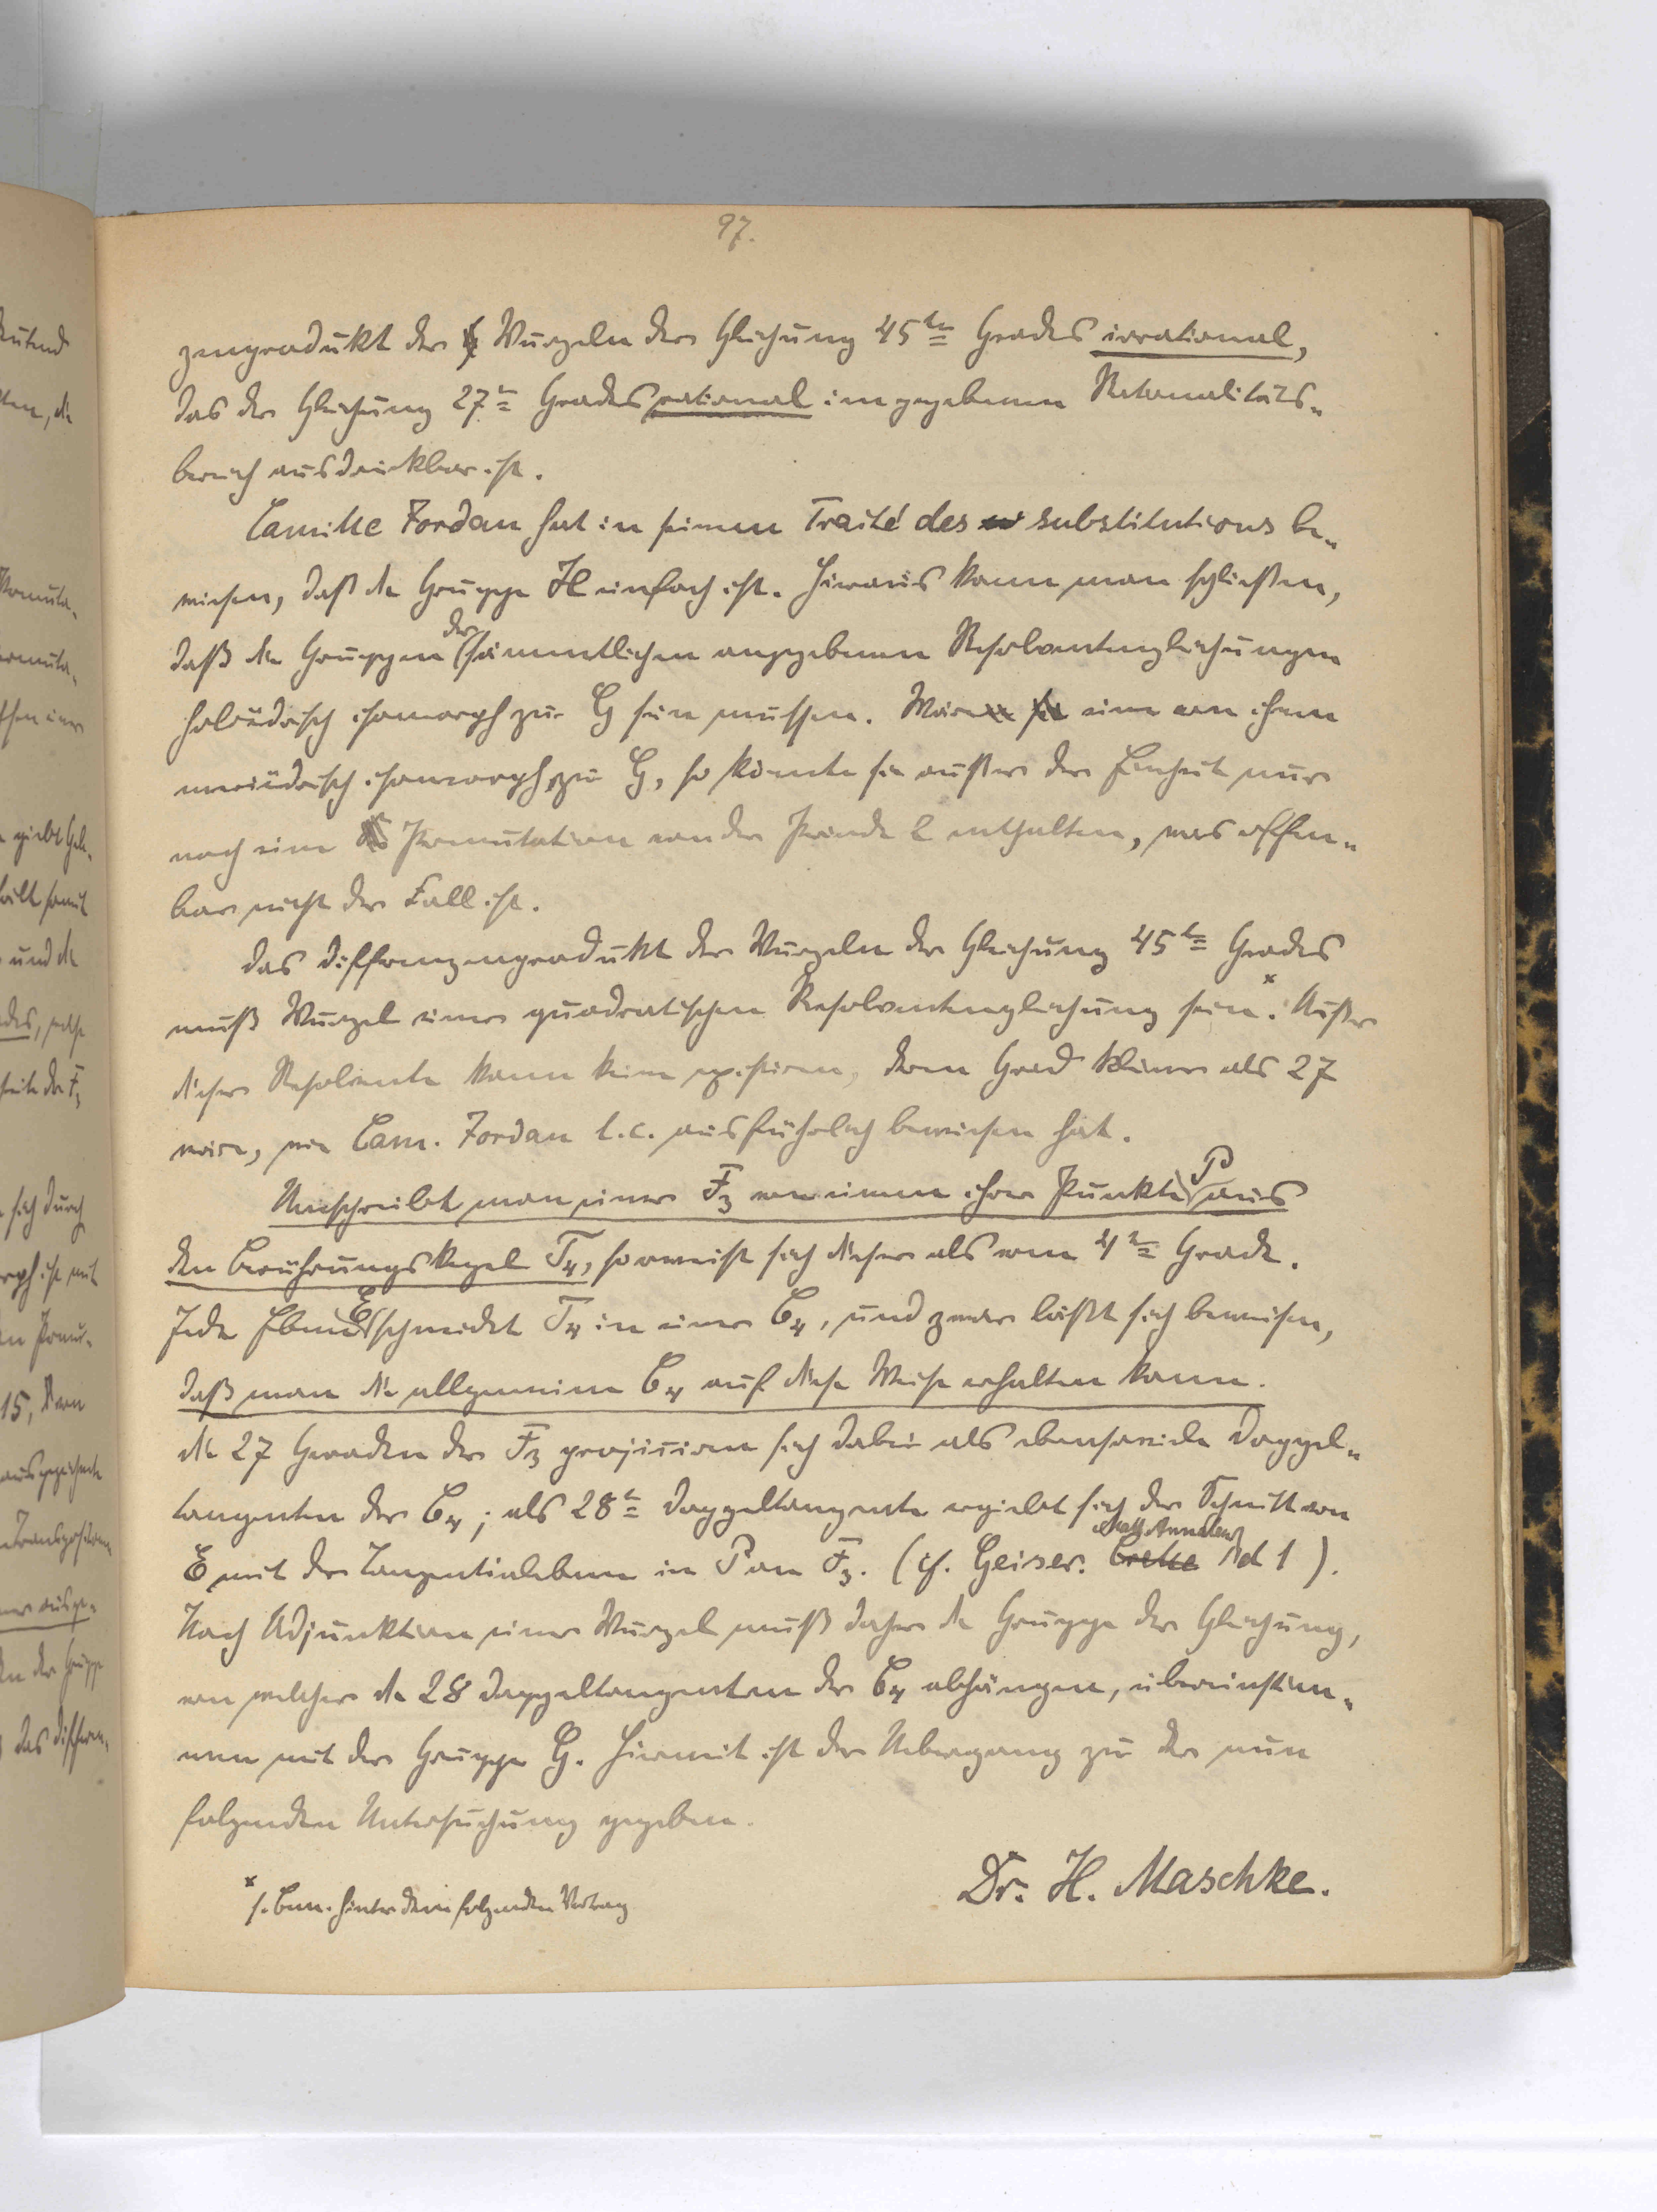 97.
zenprodukt der Wurzeln der Gleichung 45ten Grades irrational,
das der Gleichung 27ten Grades rational im gegebenen Rationalitäts-
bereich ausdrückbar ist.
Camille Jordan hat in seinem Traité des substitutions be-
wiesen, daß die Gruppe H einfach ist. Hieraus kann man schließen,
daß die Gruppen der sämmtlichen angegebenen Resolventengleichungen
holoëdrisch isomorph zu G sein müssen. Wäre eine von ihnen
meriëdrisch isomorph zu G, so könnte sie außer der Einheit nur
noch eine Permutation von der Periode 2 enthalten, was offen-
bar nicht der Fall ist.
Das Differenzenprodukt der Wurzeln der Gleichung 45ten Grades
muß Wurzel einer quadratischen Resolventengleichung sein.x Außer
dieser Resolvente kann keine existiren, deren Grad kleiner als 27
wäre, wie Cam. Jordan l.c. ausführlich bewiesen hat.
Umschreibt man einer F3 von einem ihrer Punkte P aus
den Berührungskegel T4, so erweist sich dieser als vom 4ten Grade.
Jede Ebene E schneidet T4 in einer C4, und zwar läßt sich beweisen,
daß man die allgemeine C4 auf diese Weise erhalten kann.
Die 27 Geraden der F3 projiciren sich dabei als ebensoviele Doppel-
tangenten der C4; als 28te Doppeltangente ergiebt sich der Schnitt von
E mit der Tangentialebene in P an F3. (cf. Geiser. Crelle Math Annalen Bd 1).
Nach Adjunktion einer Wurzel muß daher die Gruppe der Gleichung,
von welcher die 28 Doppeltangenten der C4 abhängen, übereinstim-
men mit der Gruppe G. Hiermit ist der Uebergang zu der nun
folgenden Untersuchung gegeben.
Dr. H. Maschke.
x s. Bem. hinter dem folgenden Vortrag